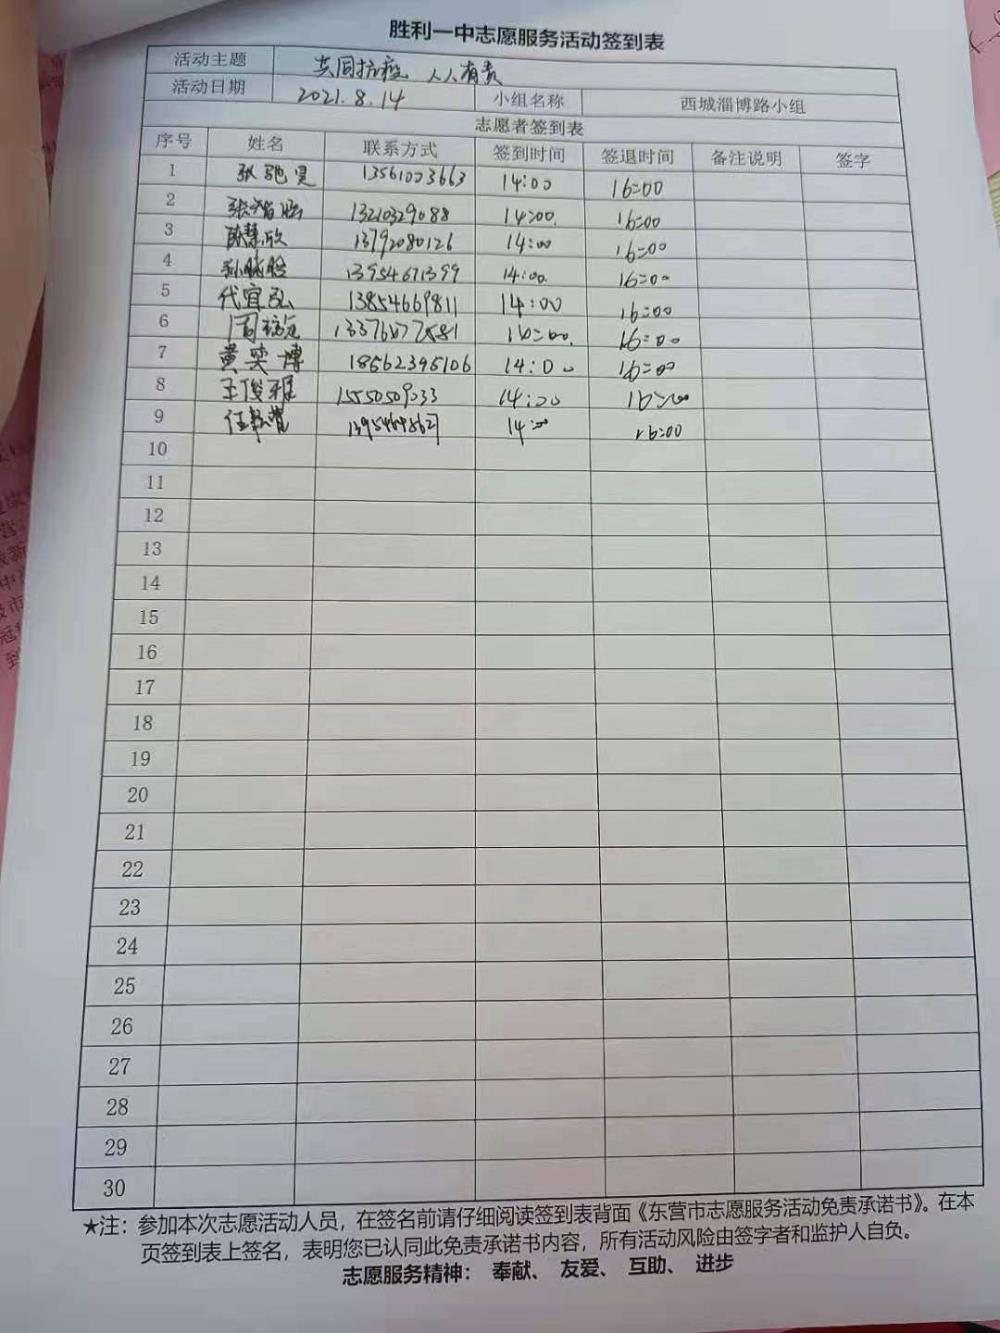 胜利一中志愿服务活动签到表
活动主题 共同抗疫 人人有责
活动日期 2021.8.14 小组名称 西城淄博路小组
志愿者签到表
序号 姓名 联系方式 签到时间 签退时间 备注说明 签字
1 张驰昊 13561003663 14:00 16:00
2 13210329088 14:00 16:00
3 陈慧欣 13792080126 14:00 16:00
4 13954671399 14:00 16:00
5 代宜弘 13854669811 14:00 16:00
6 16:00
7 黄奕博 18562395106 14:00 16:00
8 王俊雅 14:00 16:00
9 14:00 16:00
10
11
12
13
14
15
16
17
18
19
20
21
22
23
24
25
26
27
28
29
30
★注：参加本次志愿活动人员，在签名前请仔细阅读签到表背面《东营市志愿服务活动免责承诺书》。在本
页签到表上签名，表明您已认同此免责承诺书内容，所有活动风险由签字者和监护人自负。
志愿服务精神： 奉献、 友爱、 互助、 进步